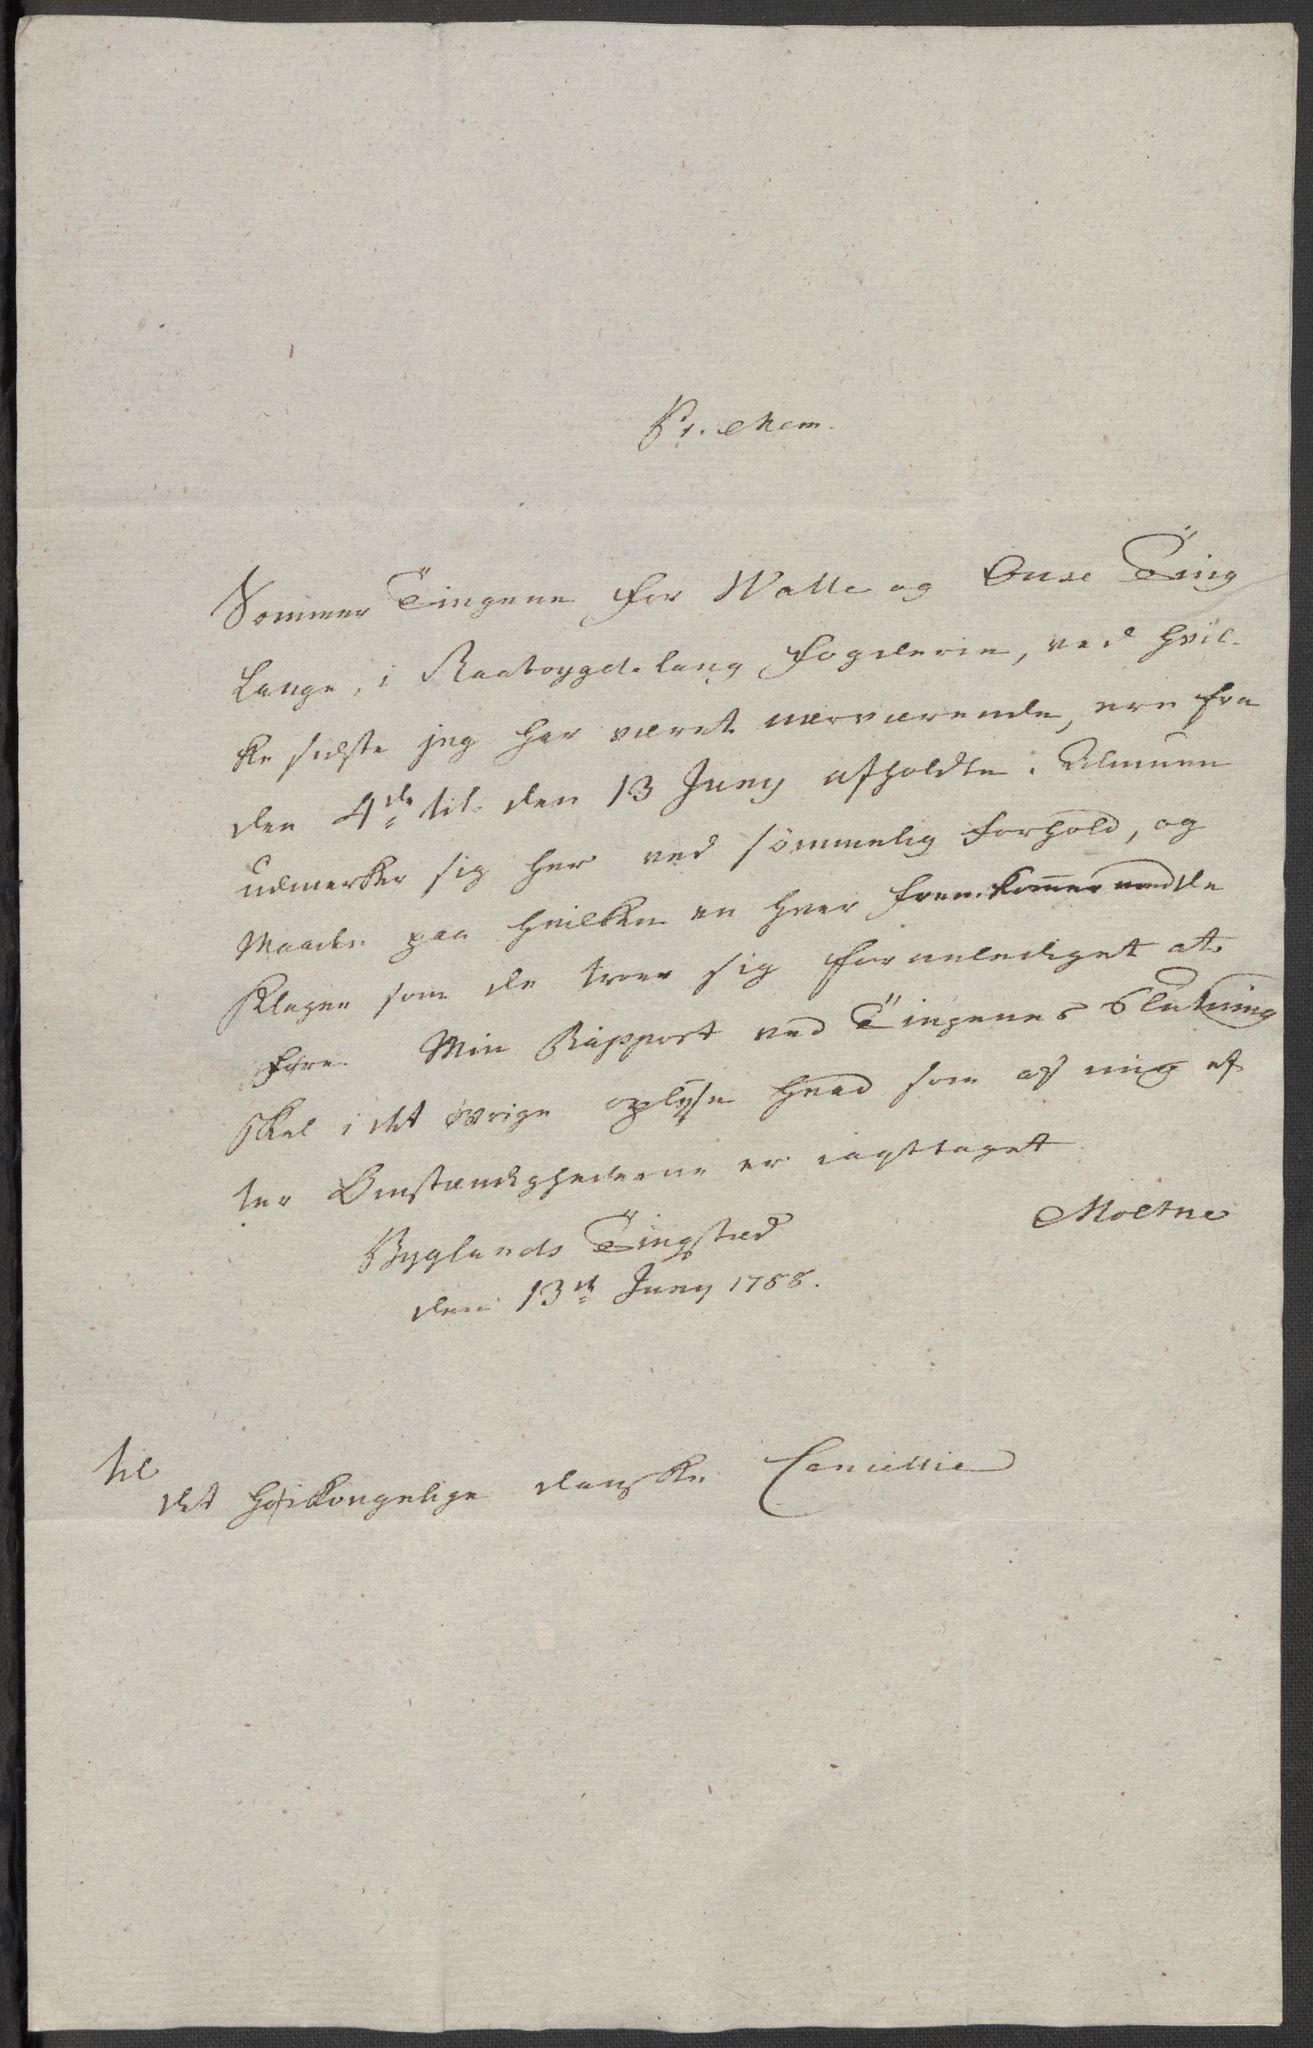 Pr. Mem.
Sommer Tingene for Walle og Ouse Ting
Lauge, i Raabygdelaug fogderie, ved hvil-
ke sidste jeg har været nærværende, ere fra
den 4de til den 13 Juny afholdte. Almuen
udmerker sig her ved sömmelig forhold, og
Maaden paa hvilken en hver fremkommer med de
Klager som de troer sig foranlediget at
føre. Min Rapport ved Tingenes Slutning
skal i det øvrige oplyse hvad som af mig ef
ter Omstændighederne er iagttaget
Moltne
Byglands Tingsted
den 13de Juny 1788.
til
det høikongelige danske Cancellie